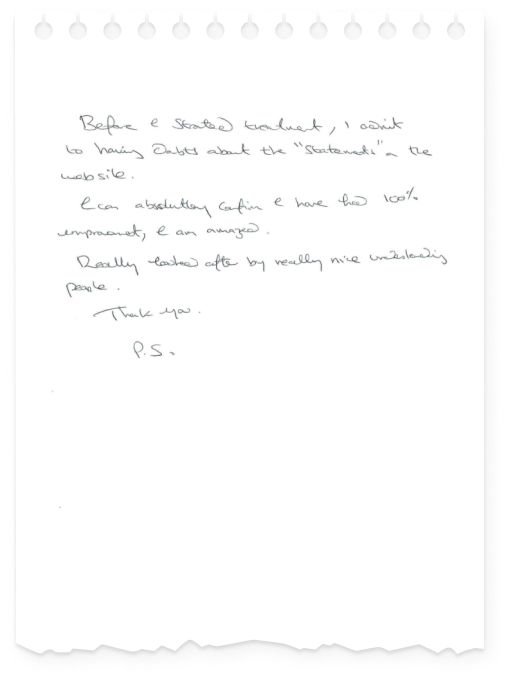 Before I started treatment, I admit
to having doubts about the "Statements" on the
website.
I can absolutely confirm I have had 100%
improvement, I am amazed.
Really looked after by really nice understanding
people.
Thank you.
P.S.